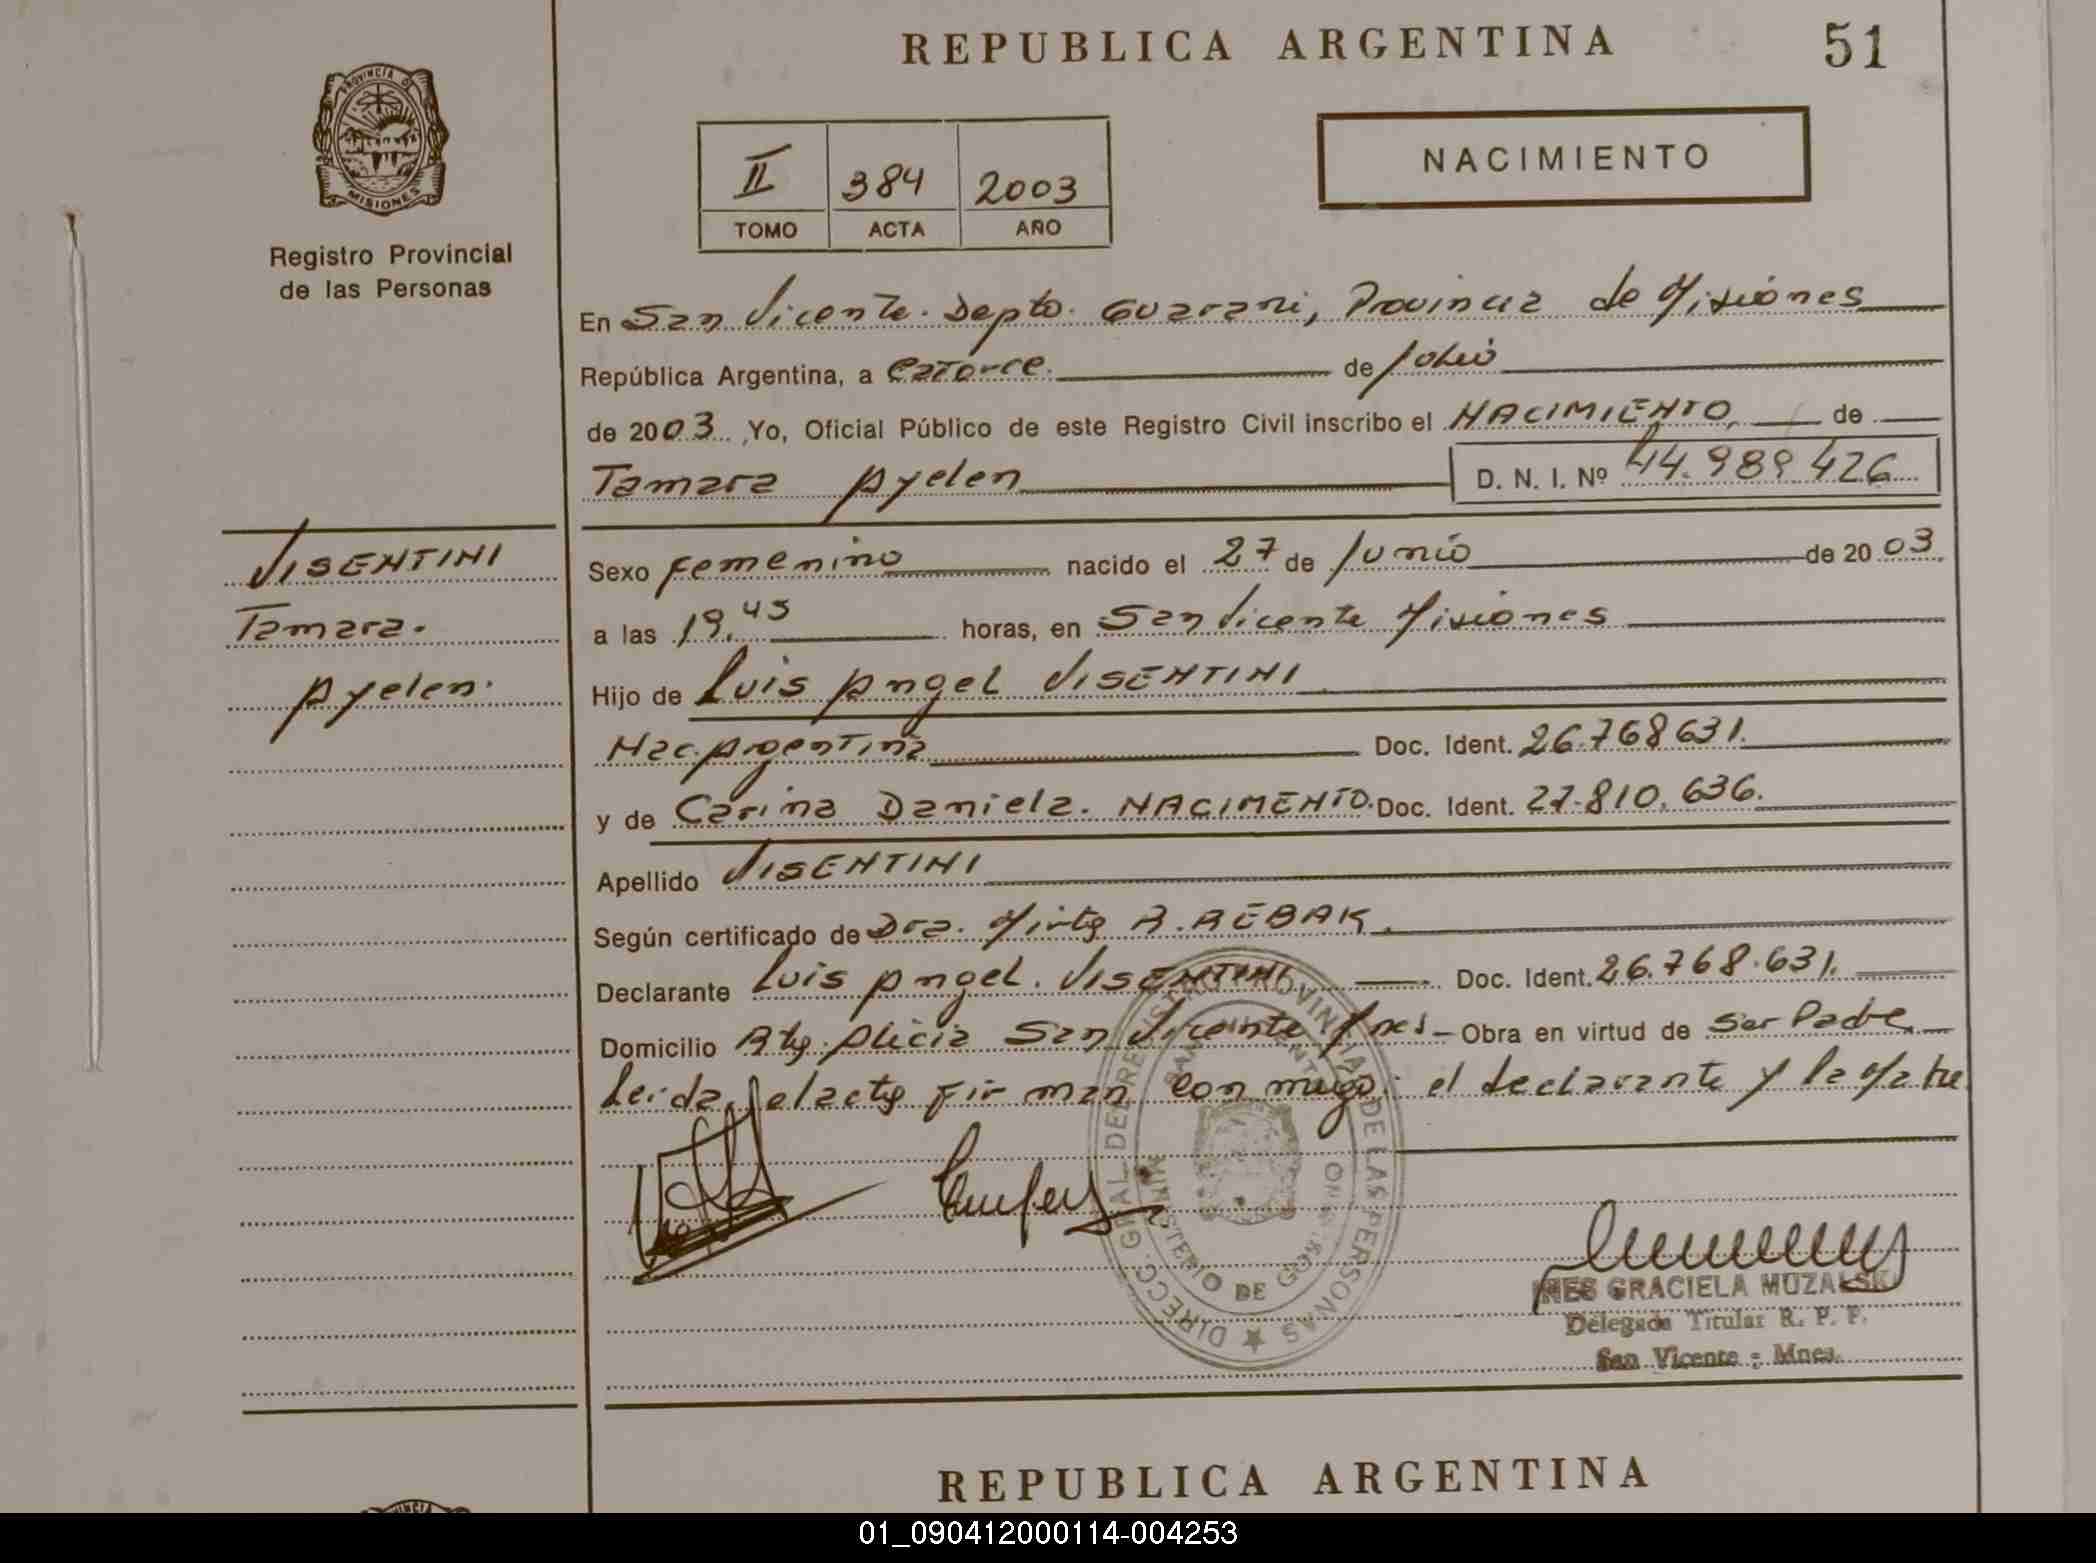 REPUBLICA ARGENTINA
51
PROVINCIA DE
MISIONES
Registro Provincial
de las Personas
II 384 2003
TOMO ACTA AÑO
NACIMIENTO
En San Vicente. Depto. Guarani, Provincia de Misiones
República Argentina, a Catorce. de Julio
de 2003. ,Yo, Oficial Público de este Registro Civil inscribo el NACIMIENTO, de
Tamara Ayelen D. N. I. Nº 44.989.426
VISENTINI
Tamara.
Ayelen.
Sexo femenino nacido el 27 de Junio de 2003.
a las 19.45 horas, en San Vicente Misiones
Hijo de Luis Angel VISENTINI
Nac. Argentina Doc. Ident. 26.768631.
y de Carina Daniela. NACIMENTO. Doc. Ident. 27.810.636.
Apellido VISENTINI
Según certificado de Dra. Mirta R. REBAK.
Declarante Luis Angel. VISENTINI Doc. Ident. 26.768.631.
Domicilio Bº Alicia San Vicente Mnes Obra en virtud de Ser Padre
Leida el acta firman conmigo: el declarante y la Madre
DIRECC. GRAL. DEL REGISTRO PROVINCIAL DE LAS PERSONAS
SAN VICENTE
MINISTERIO DE GOB.
INES GRACIELA MUZALSKI
Delegada Titular R. P. P.
San Vicente - Mnes.
REPUBLICA ARGENTINA
01_090412000114-004253